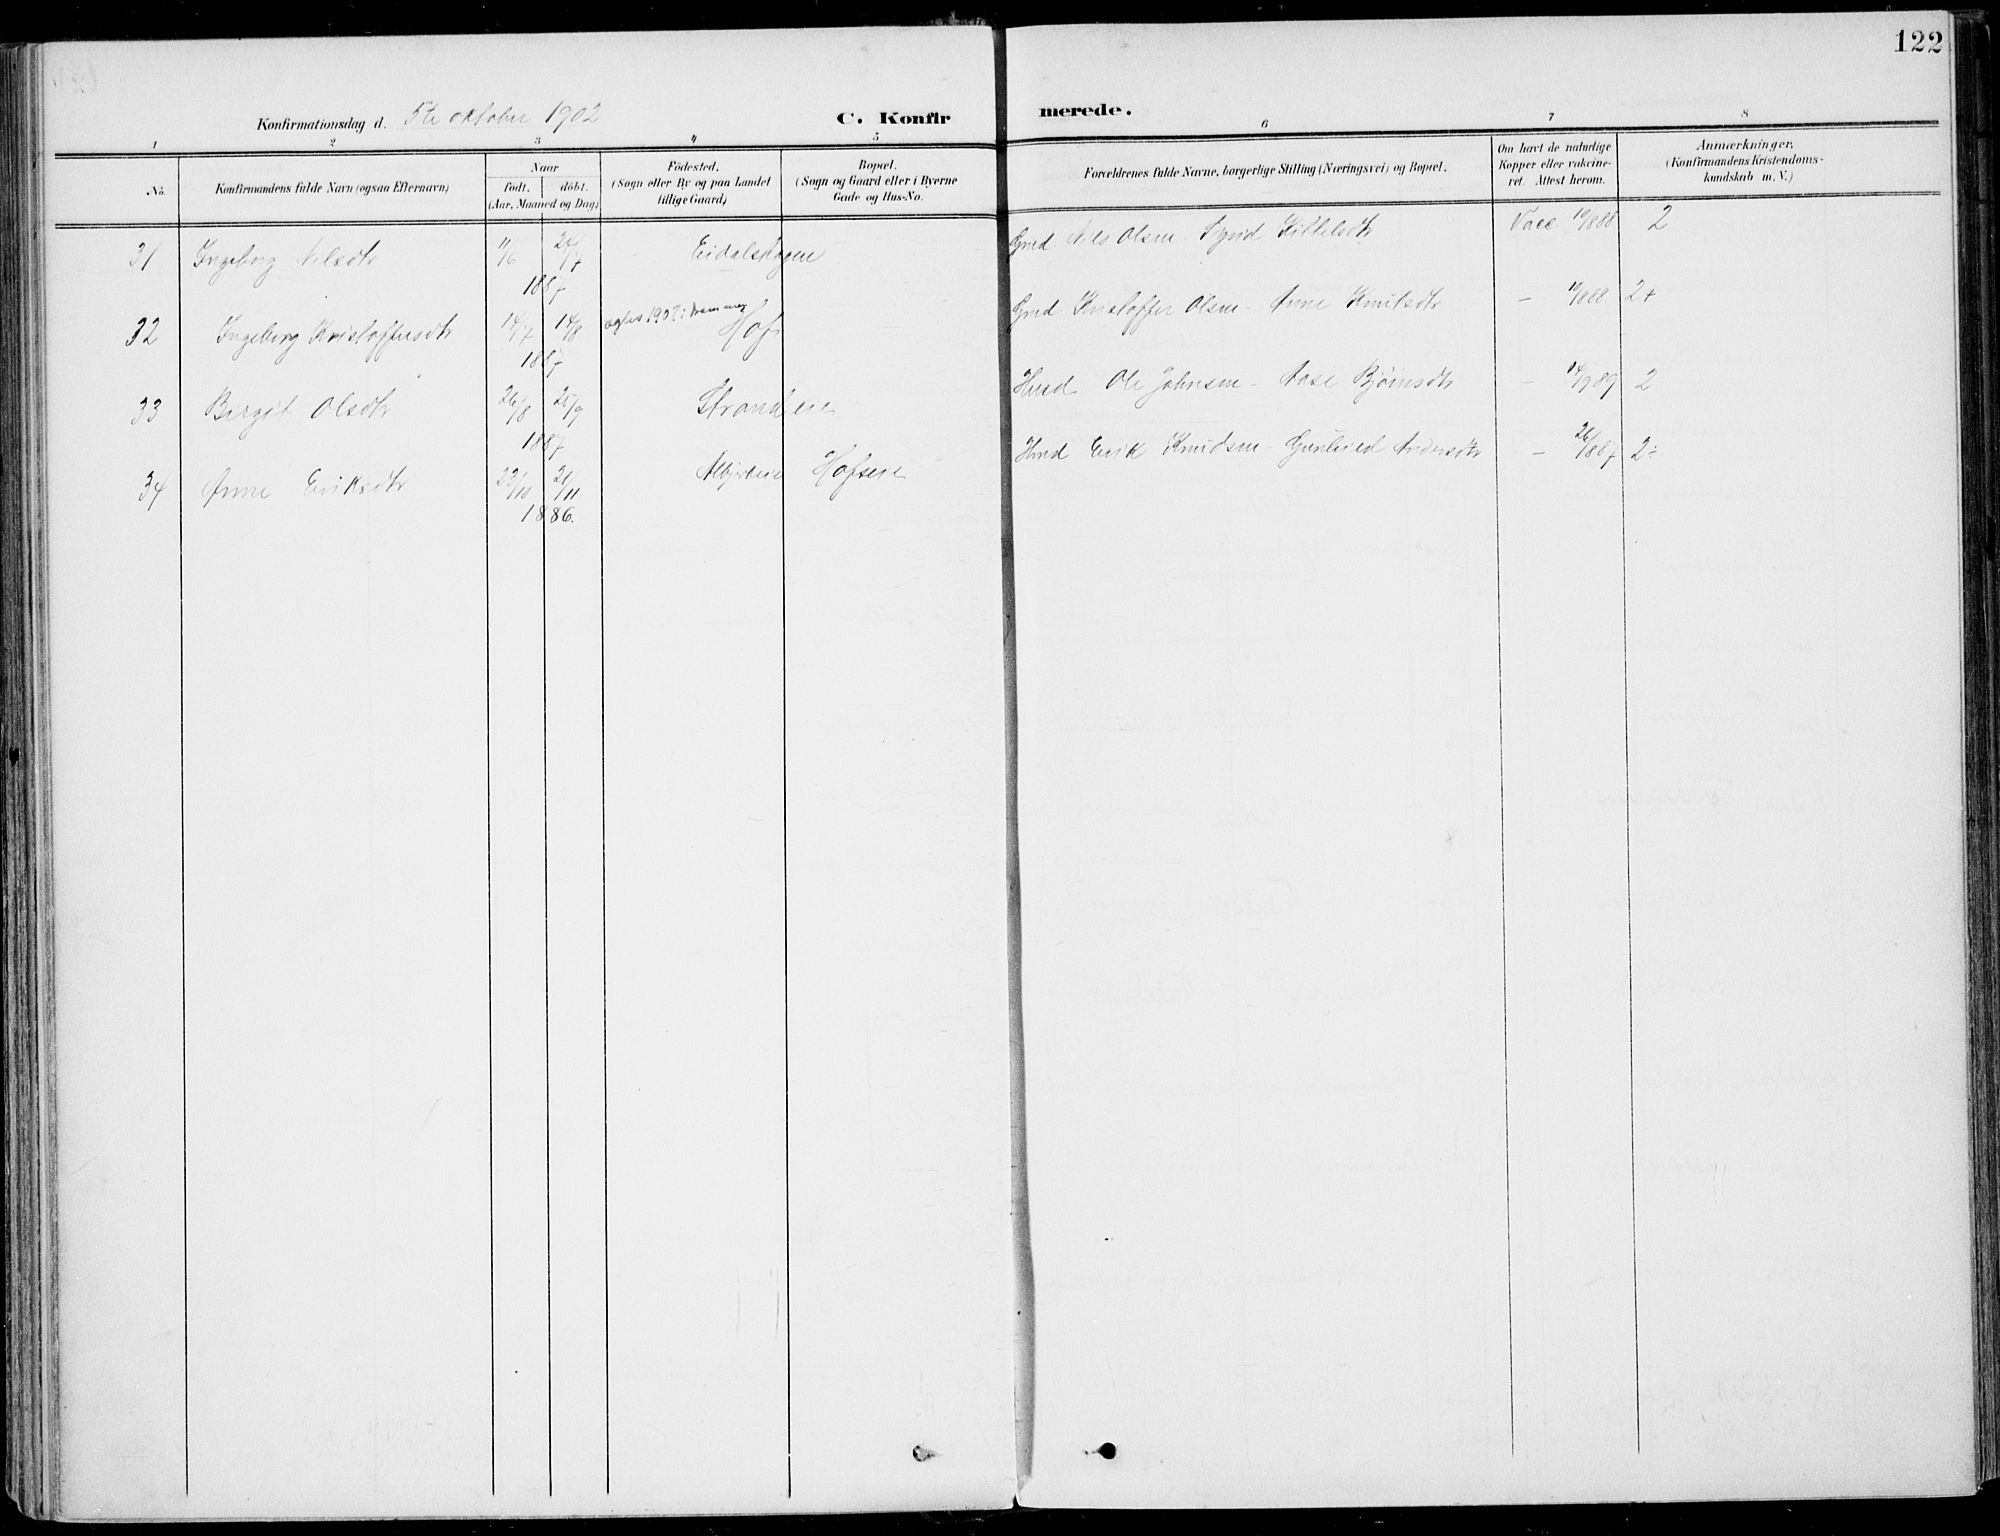 122
Konfirmationsdag d. 5te oktober 1902
C. Konfir merede.
1 2 3 4 5 6 7 8
No. Konfirmandens fulde Navn (ogsaa Efternavn)
Naar
født. døbt.
(Aar, Maaned og Dag)
Födested.
(Sogn eller By og paa Landet
tillige Gaard)
Bopæl.
(Sogn og Gaard eller i Byerne
Gade og Hus-No.
Forældrenes fulde Navne, borgerlige Stilling (Næringsvei) og Bopæl.
Om havt de naturlige
Kopper eller vakcine-
ret. Attest herom.
Anmærkninger.
(Konfirmandens Kristendoms-
kundskab m. V.)
31 Ingeborg Nilsdtr 11/6 24/7 Eidalshagen Nils Olsen - Kittelsdtr Vacc 10/8 88 2
1887
32 Ingeborg Kristoffersdtr 14/7 14/8 1902 i Hof Kristoffer Olsen - Anne Knutsdtr - 10/8 88 2+
1887
33 Birgit Olsdtr 26/8 25/9 Strandeie Husd Ole Johnsen - Aase Bjørnsdtr - 14/9 89 2
1887
34 Anne Eriksdtr 23/10 21/11 Hofseie Husd Erik Knudsen - Gunhild Andersdtr - 26/8 87 2÷
1886.